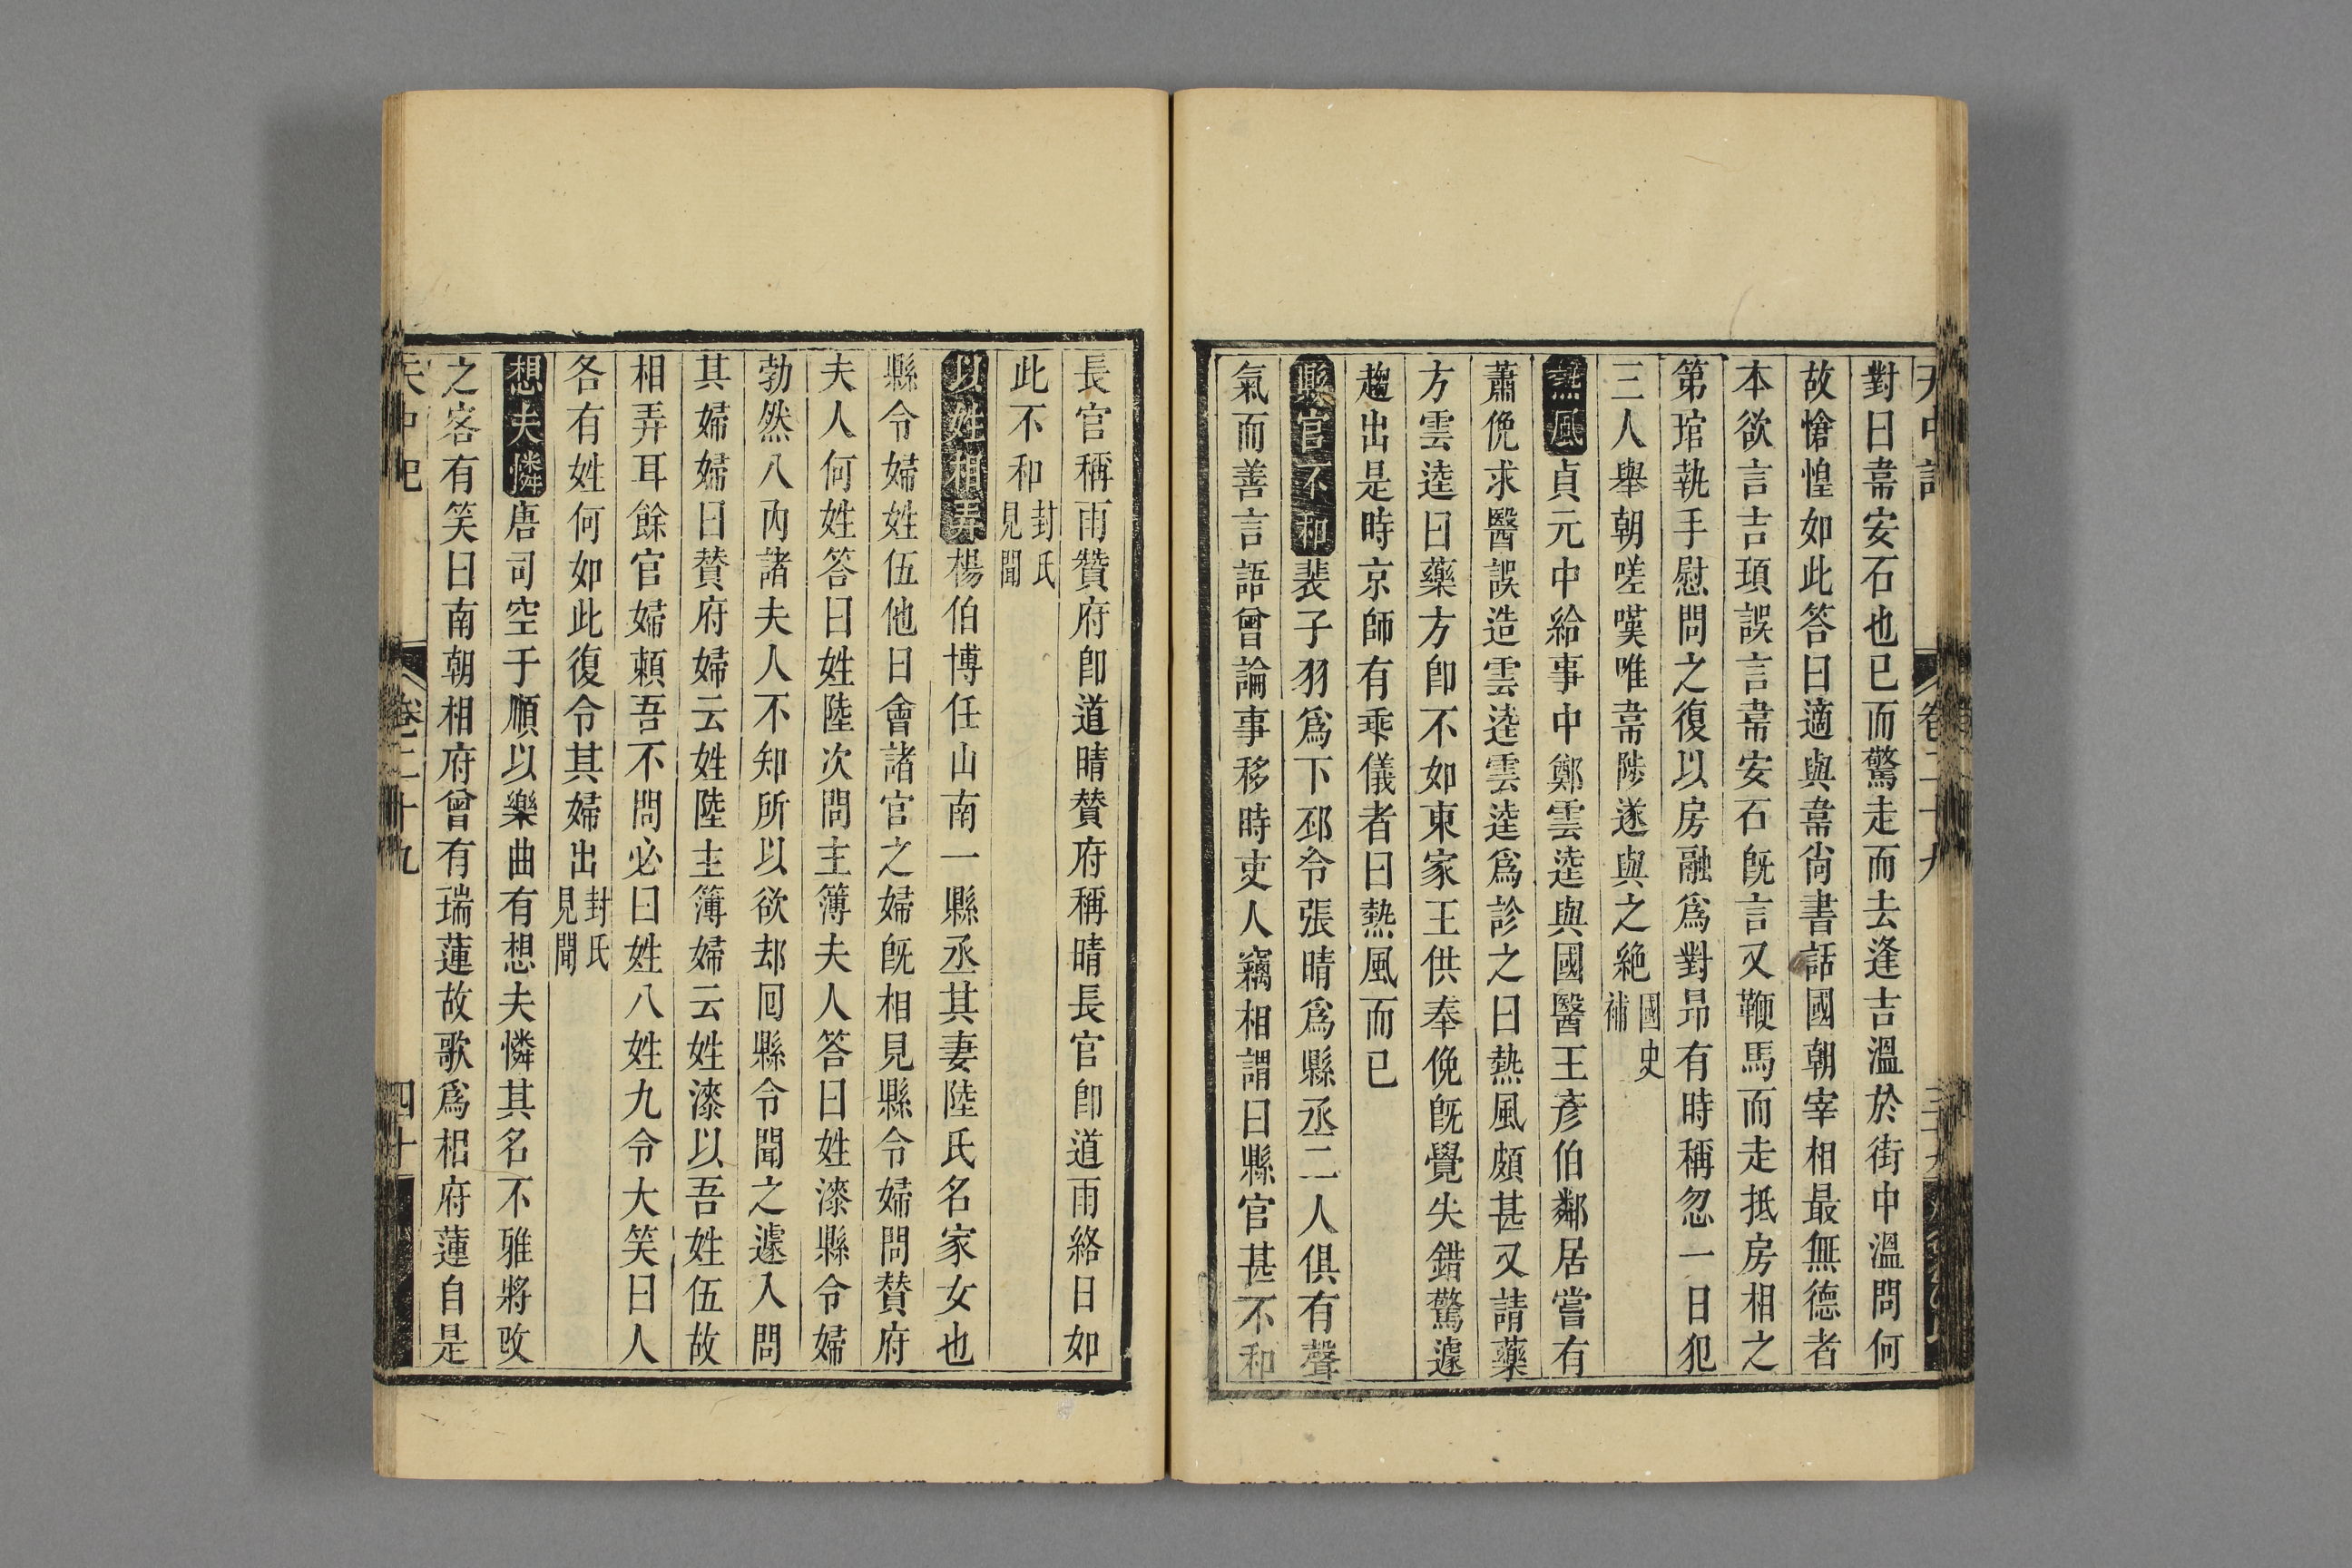 對曰韋安石也已而驚走而去逢吉溫於街中溫問何
故愴惶如此答曰適與韋尙書話國朝宰相最無德者
本欲言吉頊誤言韋安石旣言又鞭馬而走抵房相之
第琯執手慰問之復以房融爲對昂有時稱忽一日犯
三人舉朝嗟嘆唯韋陟遂與之絶國史補
熱風貞元中給事中鄭雲逵與國醫王彥伯鄰居嘗有
蕭俛求醫誤造雲逵雲逵爲診之曰熱風頗甚又請藥
方雲逵曰藥方卽不如東家王供奉俛旣覺失錯驚遽
趨出是時京師有乖儀者曰熱風而已
縣官不和裴子羽爲下邳令張晴爲縣丞二人俱有聲
氣而善言語曾論事移時吏人竊相謂曰縣官甚不和
長官稱雨贊府卽道晴贊府稱晴長官卽道雨終日如
此不和封氏見聞
以姓相弄楊伯博任山南一縣丞其妻陸氏名家女也
縣令婦姓伍他日會諸官之婦旣相見縣令婦問贊府
夫人何姓答曰姓陸次問主簿夫人答曰姓漆縣令婦
勃然入內諸夫人不知所以欲却回縣令聞之遽入問
其婦婦曰贊府婦云姓陸主簿婦云姓漆以吾姓伍故
相弄耳餘官婦賴吾不問必曰姓八姓九令大笑曰人
各有姓何如此復令其婦出封氏見聞
想夫憐唐司空于頔以樂曲有想夫憐其名不雅將改
之客有笑曰南朝相府曾有瑞蓮故歌爲相府蓮自是
天中記 卷二十九 四十